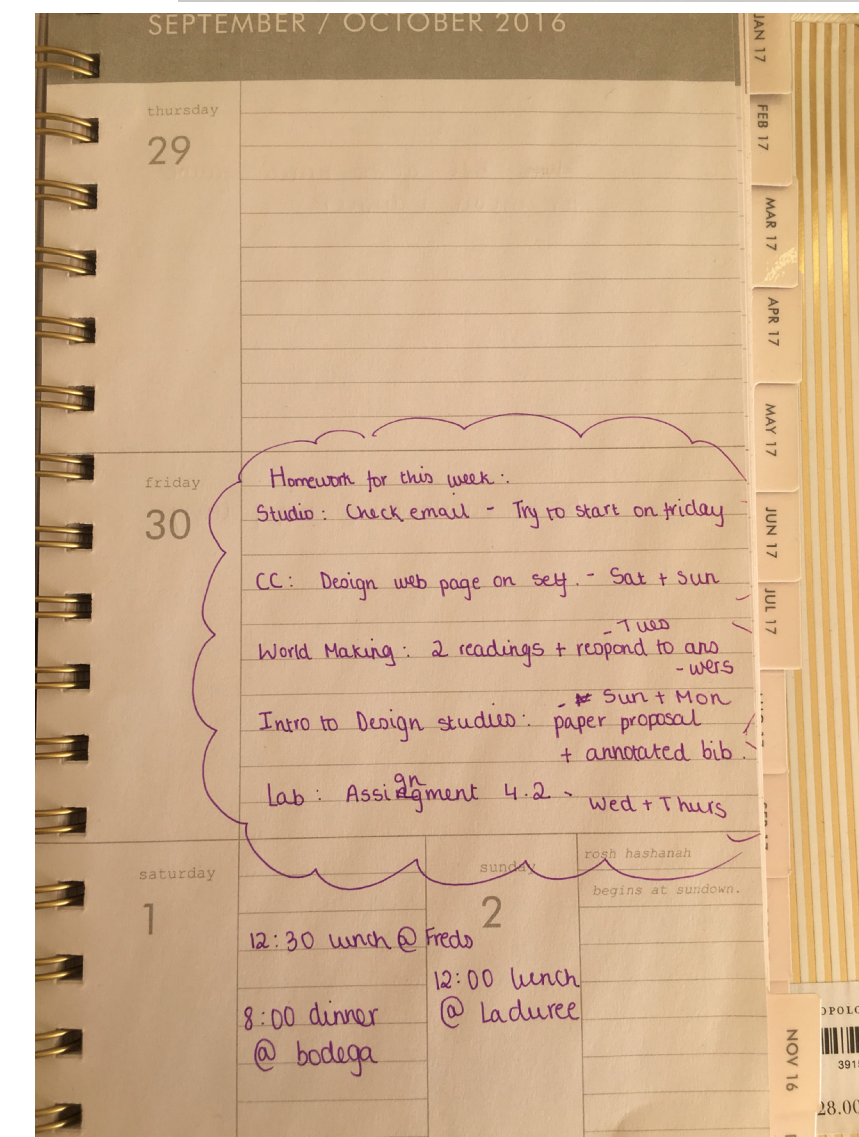 SEPTEMBER / OCTOBER 2016
thursday
29
friday
30
Homework for this week:
Studio: Check email - Try to start on friday
CC: Design web page on self. - Sat + Sun
- Tues
World Making: 2 readings + respond to ans
- wers
- Sun + Mon
Intro to Design studies: paper proposal
+ annotated bib.
Lab: Assignment 4.2 - Wed + Thurs
saturday
1
12:30 lunch @ Freds
8:00 dinner
@ bodega
sunday
2
12:00 lunch
@ Laduree
rosh hashanah
begins at sundown.
JAN 17
FEB 17
MAR 17
APR 17
MAY 17
JUN 17
JUL 17
NOV 16
OPOL
391
28.00